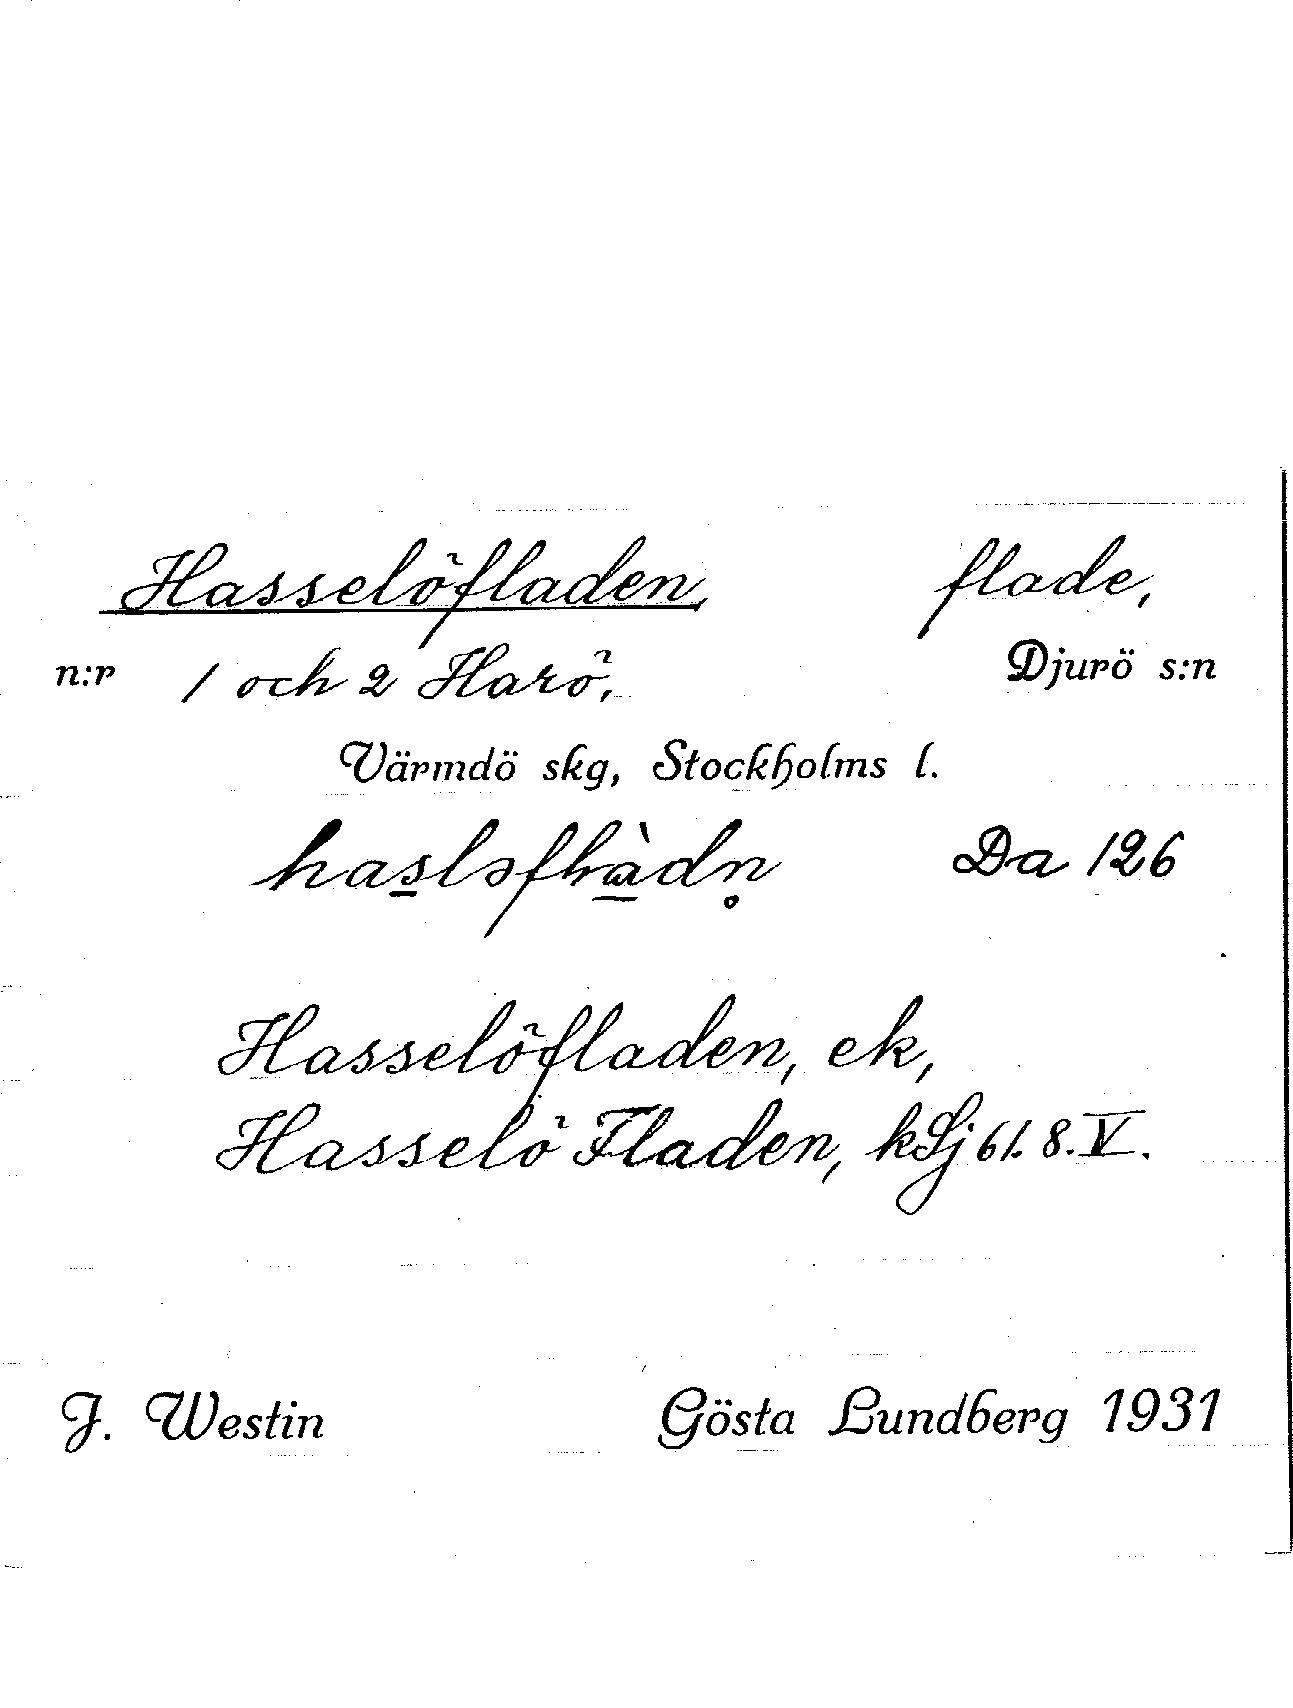 Hasselöfladen, flade,
n:r 1 och 2 Harö, Djurö s:n
Värmdö skg, Stockholms l.
Da 126
Hasselöfladen, ek,
Hasselö Fladen, kSj 61. 8. V.
J. Westin Gösta Lundberg 1931